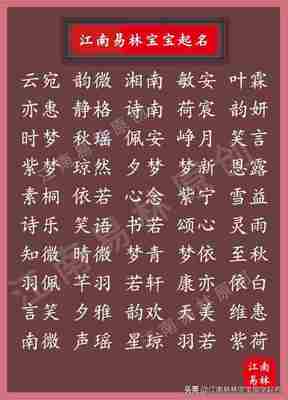 江南易林宝宝起名
云宛 韵微 湘南 敏安 叶霖
亦惠 静格 诗南 荷宸 韵妍
时梦 秋瑶 佩安 峥月 笑言
紫梦 琼然 夕梦 梦新 恩露
素桐 依若 心念 紫宁 雪益
诗乐 笑语 书若 颂心 灵雨
知微 晴微 梦青 梦依 至秋
羽佩 芊羽 若轩 康亦 依白
言笑 夕雅 韵欢 天美 维惠
南微 声瑶 星琼 羽若 紫荷
江南易林原创
江南易林原创
江南易林原创
江南
易林
头条 @江南易林宝宝起名